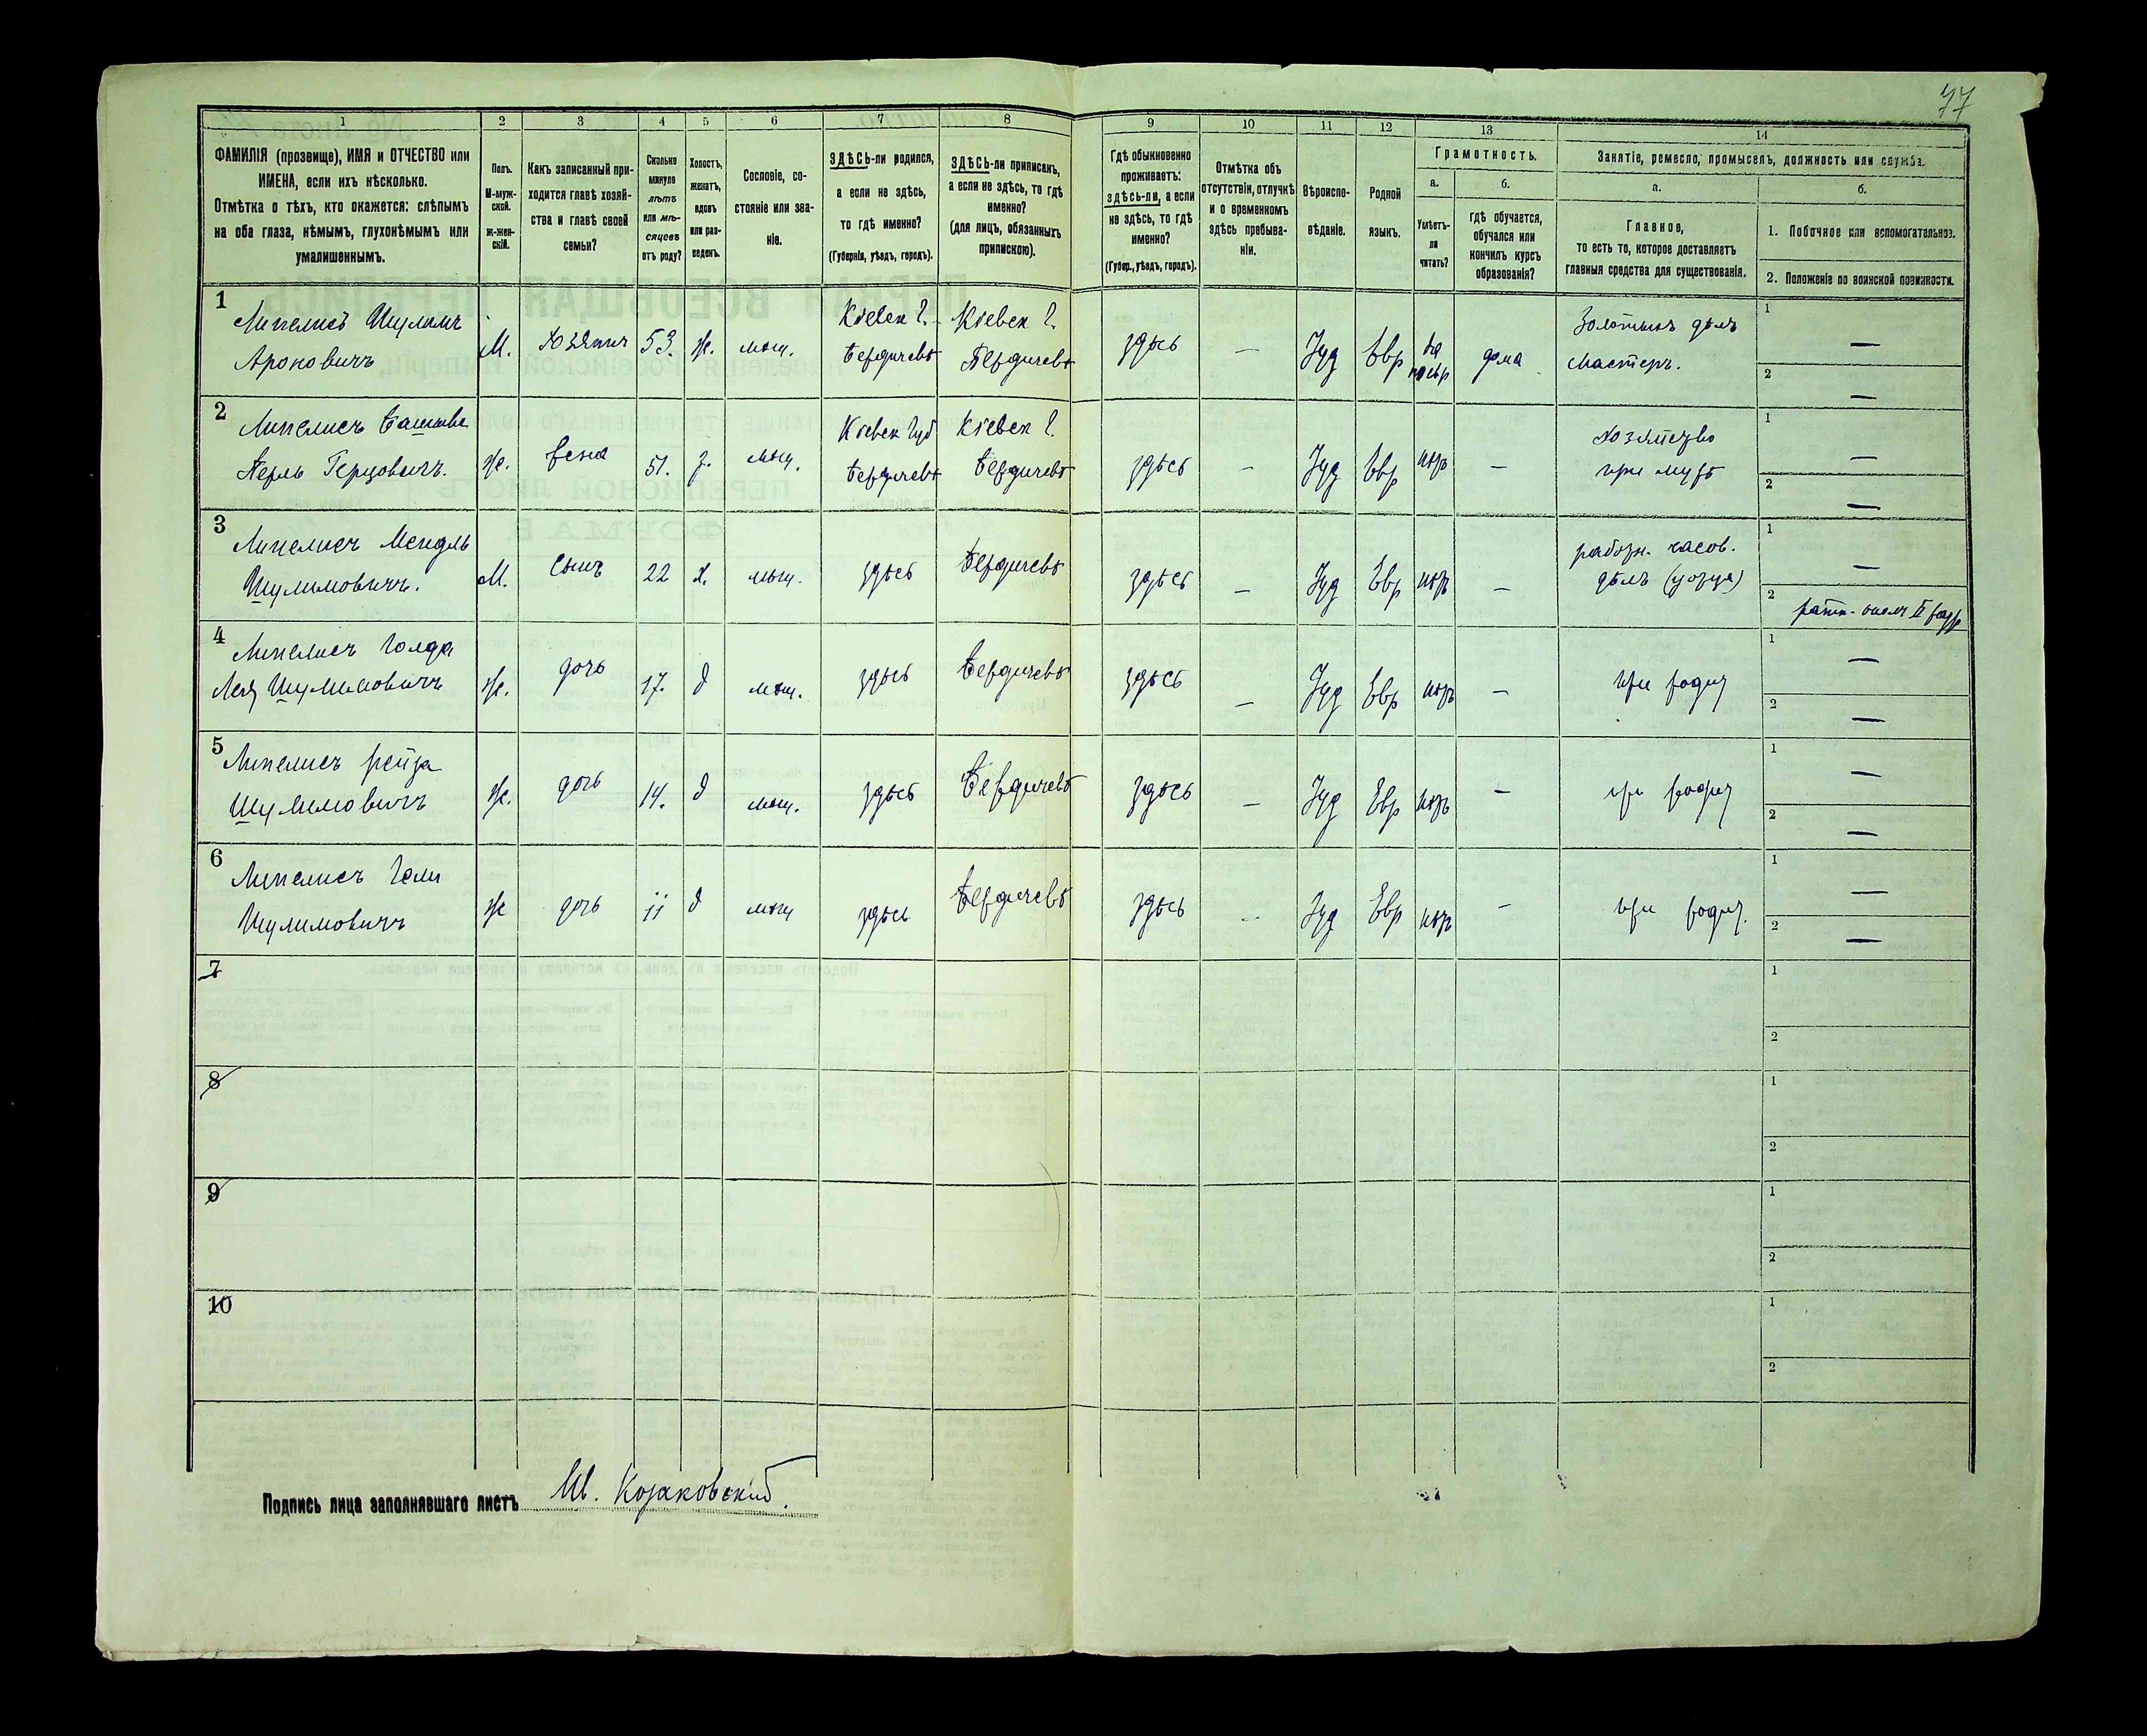 77
1 2 3 4 5 6 7 8 9 10 11 12 13 14
ФАМИЛІЯ (прозвище), ИМЯ и ОТЧЕСТВО или
ИМЕНА, если ихъ нѣсколько.
Отмѣтка о тѣхъ, кто окажется: слѣпымъ
на оба глаза, нѣмымъ, глухонѣмымъ или
умалишеннымъ.
Полъ.
М-муж-
ской.
ж-жен-
скій.
Какъ записанный при-
ходится главѣ хозяй-
ства и главѣ своей
семьи?
Сколько
минуло
лѣтъ
или мѣ-
сяцевъ
отъ роду?
Холостъ,
женатъ,
вдовъ
или раз-
веденъ.
Сословіе, со-
стояніе или зва-
ніе.
ЗДѢСЬ-ли родился,
а если не здѣсь,
то гдѣ именно?
(Губернія, уѣздъ, городъ).
ЗДѢСЬ-ли приписанъ,
а если не здѣсь, то гдѣ
именно?
(для лицъ, обязанныхъ
припискою).
Гдѣ обыкновенно
проживаетъ:
здѣсь-ли, а если
не здѣсь, то гдѣ
именно?
(Губер., уѣздъ, городъ).
Отмѣтка объ
отсутствіи, отлучкѣ
и о временномъ
здѣсь пребыва-
ніи.
Вѣроиспо-
вѣданіе.
Родной
языкъ.
Грамотность.
а.
Умѣетъ-
ли
читать?
б.
гдѣ обучается,
обучался или
кончилъ курсъ
образованія?
Занятіе, ремесло, промыселъ, должность или служба.
а.
Главное,
то есть то, которое доставляетъ
главныя средства для существованія.
б.
1. Побочное или вспомогательное.
2. Положеніе по воинской повинности.
1 Липелисъ Шулимъ
Ароновичъ
М. Хозяинъ 53. ж. мѣщ.
Кіевск г.
Бердичевѣ
Кіевск г.
Бердичевѣ
здѣсь — Іуд Евр да
дома
Золотыхъ дѣлъ
мастеръ.
1 —
2 —
2 Липелисъ
Перль Герцовичъ.
ж. жена 51. з. мѣщ.
Кіевск губ
Бердичевѣ
Кіевск г.
Бердичевѣ
здѣсь — Іуд Евр нѣтъ —
хозяйство
при мужѣ
1 —
2 —
3 Липелисъ Мендль
Шулимовичъ.
М. сынъ 22 х. мѣщ. здѣсь Бердичевѣ здѣсь — Іуд Евр нѣтъ —
работн. часов.
дѣлъ
1 —
2 ратн. опол II разр
4 Липелисъ Голда
Лея Шулимовичъ
ж. дочь 17. д мѣщ. здѣсь Бердичевѣ здѣсь — Іуд Евр нѣтъ — при родит
1 —
2 —
5 Липелисъ Рейза
Шулимовичъ
ж. дочь 14. д мѣщ. здѣсь Бердичевѣ здѣсь — Іуд Евр нѣтъ — при родит
1 —
2 —
6 Липелисъ
Шулимовичъ
ж дочь 11 д мѣщ здѣсь Бердичевѣ здѣсь — Іуд Евр нѣтъ — при родит.
1 —
2 —
7 1
2
8 1
2
9 1
2
10 1
2
Подпись лица заполнявшаго листъ Ш. Козаковскій.